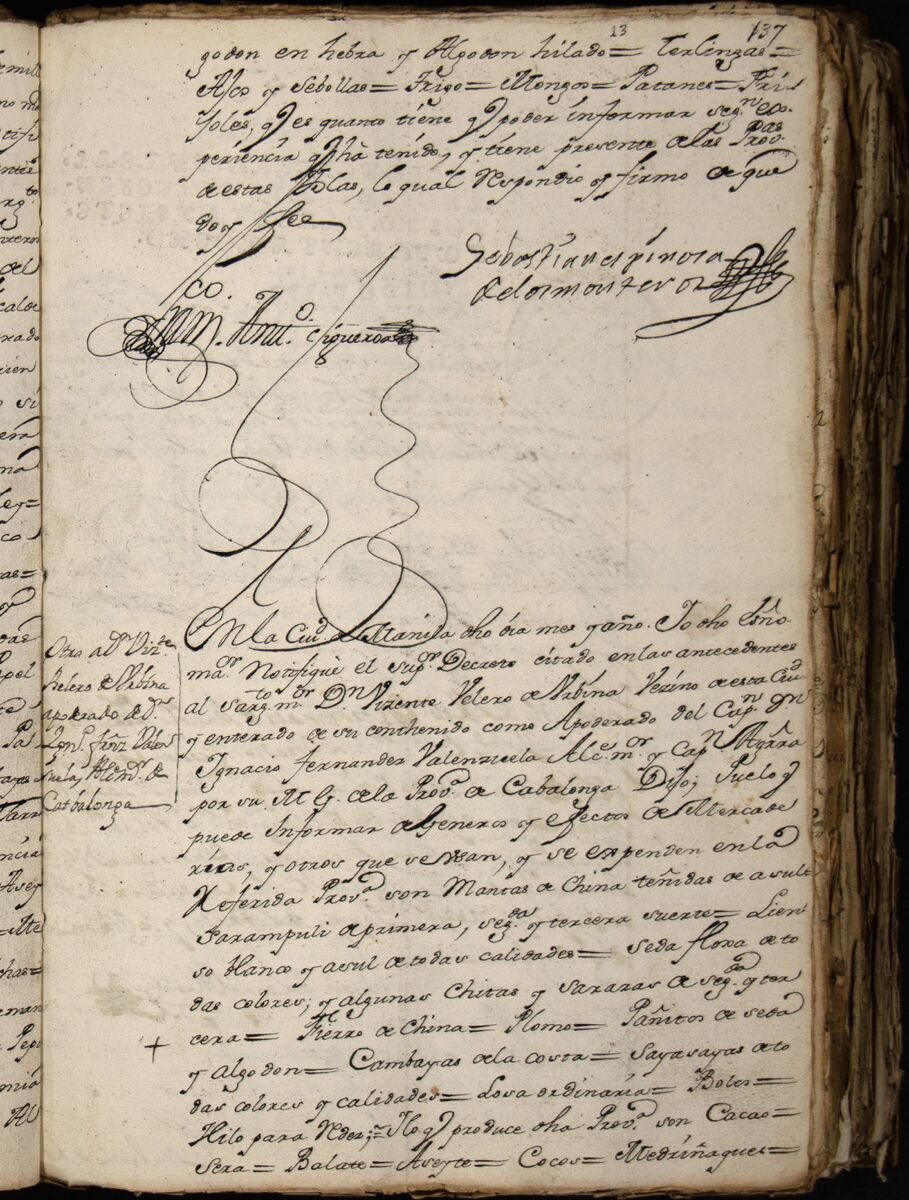 13 137
godon en hebra y Algodon hilado= Terlingas=
Ajos y Sebollas= Trigo= Mongos= Patanes= Fri
joles, q̃ es quanto tiẽne q̃ poder informar segn̄ ex
periẽncia q̃ hà tenido, y tiene presente de las Provas
de estas Yslas, lo qual Respondio y firmo de que
doy fee
Sebastian espinosa
de los monteros
co.
Anto. Figueroa
En la Ciud. de Manila dho dia mes y año. Yo dho Esño.
mar. Notifiquè el supor. Decreto citado en las antecedentes
al sargto. mor. Dn. Vizente Velero de Urbina Vezino de esta Ciud.
y enterado de su conthenido como Apoderado del Capn. Dn.
Ignacio Fernandez Valenzuela Alce. mor. y Capn. âgrra
por su M G. de la Prova. de Cabalonga Dijo; Puelo q̃
puede Informar de Generos y efectos de Mercade
rias, y otros que se usan, y se expenden en la
Referida Prova. son Mantas de China teñidas de asul=
Sarampuli de primera, segda. y tercera suerte= Lien
so blanco y asul de todas calidades= seda floxa de to
das colores; y algunas Chitas y sararas de segda. y ter
cera= Fierro de China= Plomo= Pañitos de seda
y algodon= Cambayas de la costa= sayasayas de to
das colores y calidades= Losa ordinaria= Bolos=
Hilo para Rder;= Y lo q̃ produce dha Prova. son Cacao=
Sera= Balate= Aseyte= Cocos= Medriñaques=
Otra a Dn. Vizte.
Velero de Urbina
apoderado de Dn.
Ygno. frnz Valen
suela, Alce. mr. de
Catbalonga
+